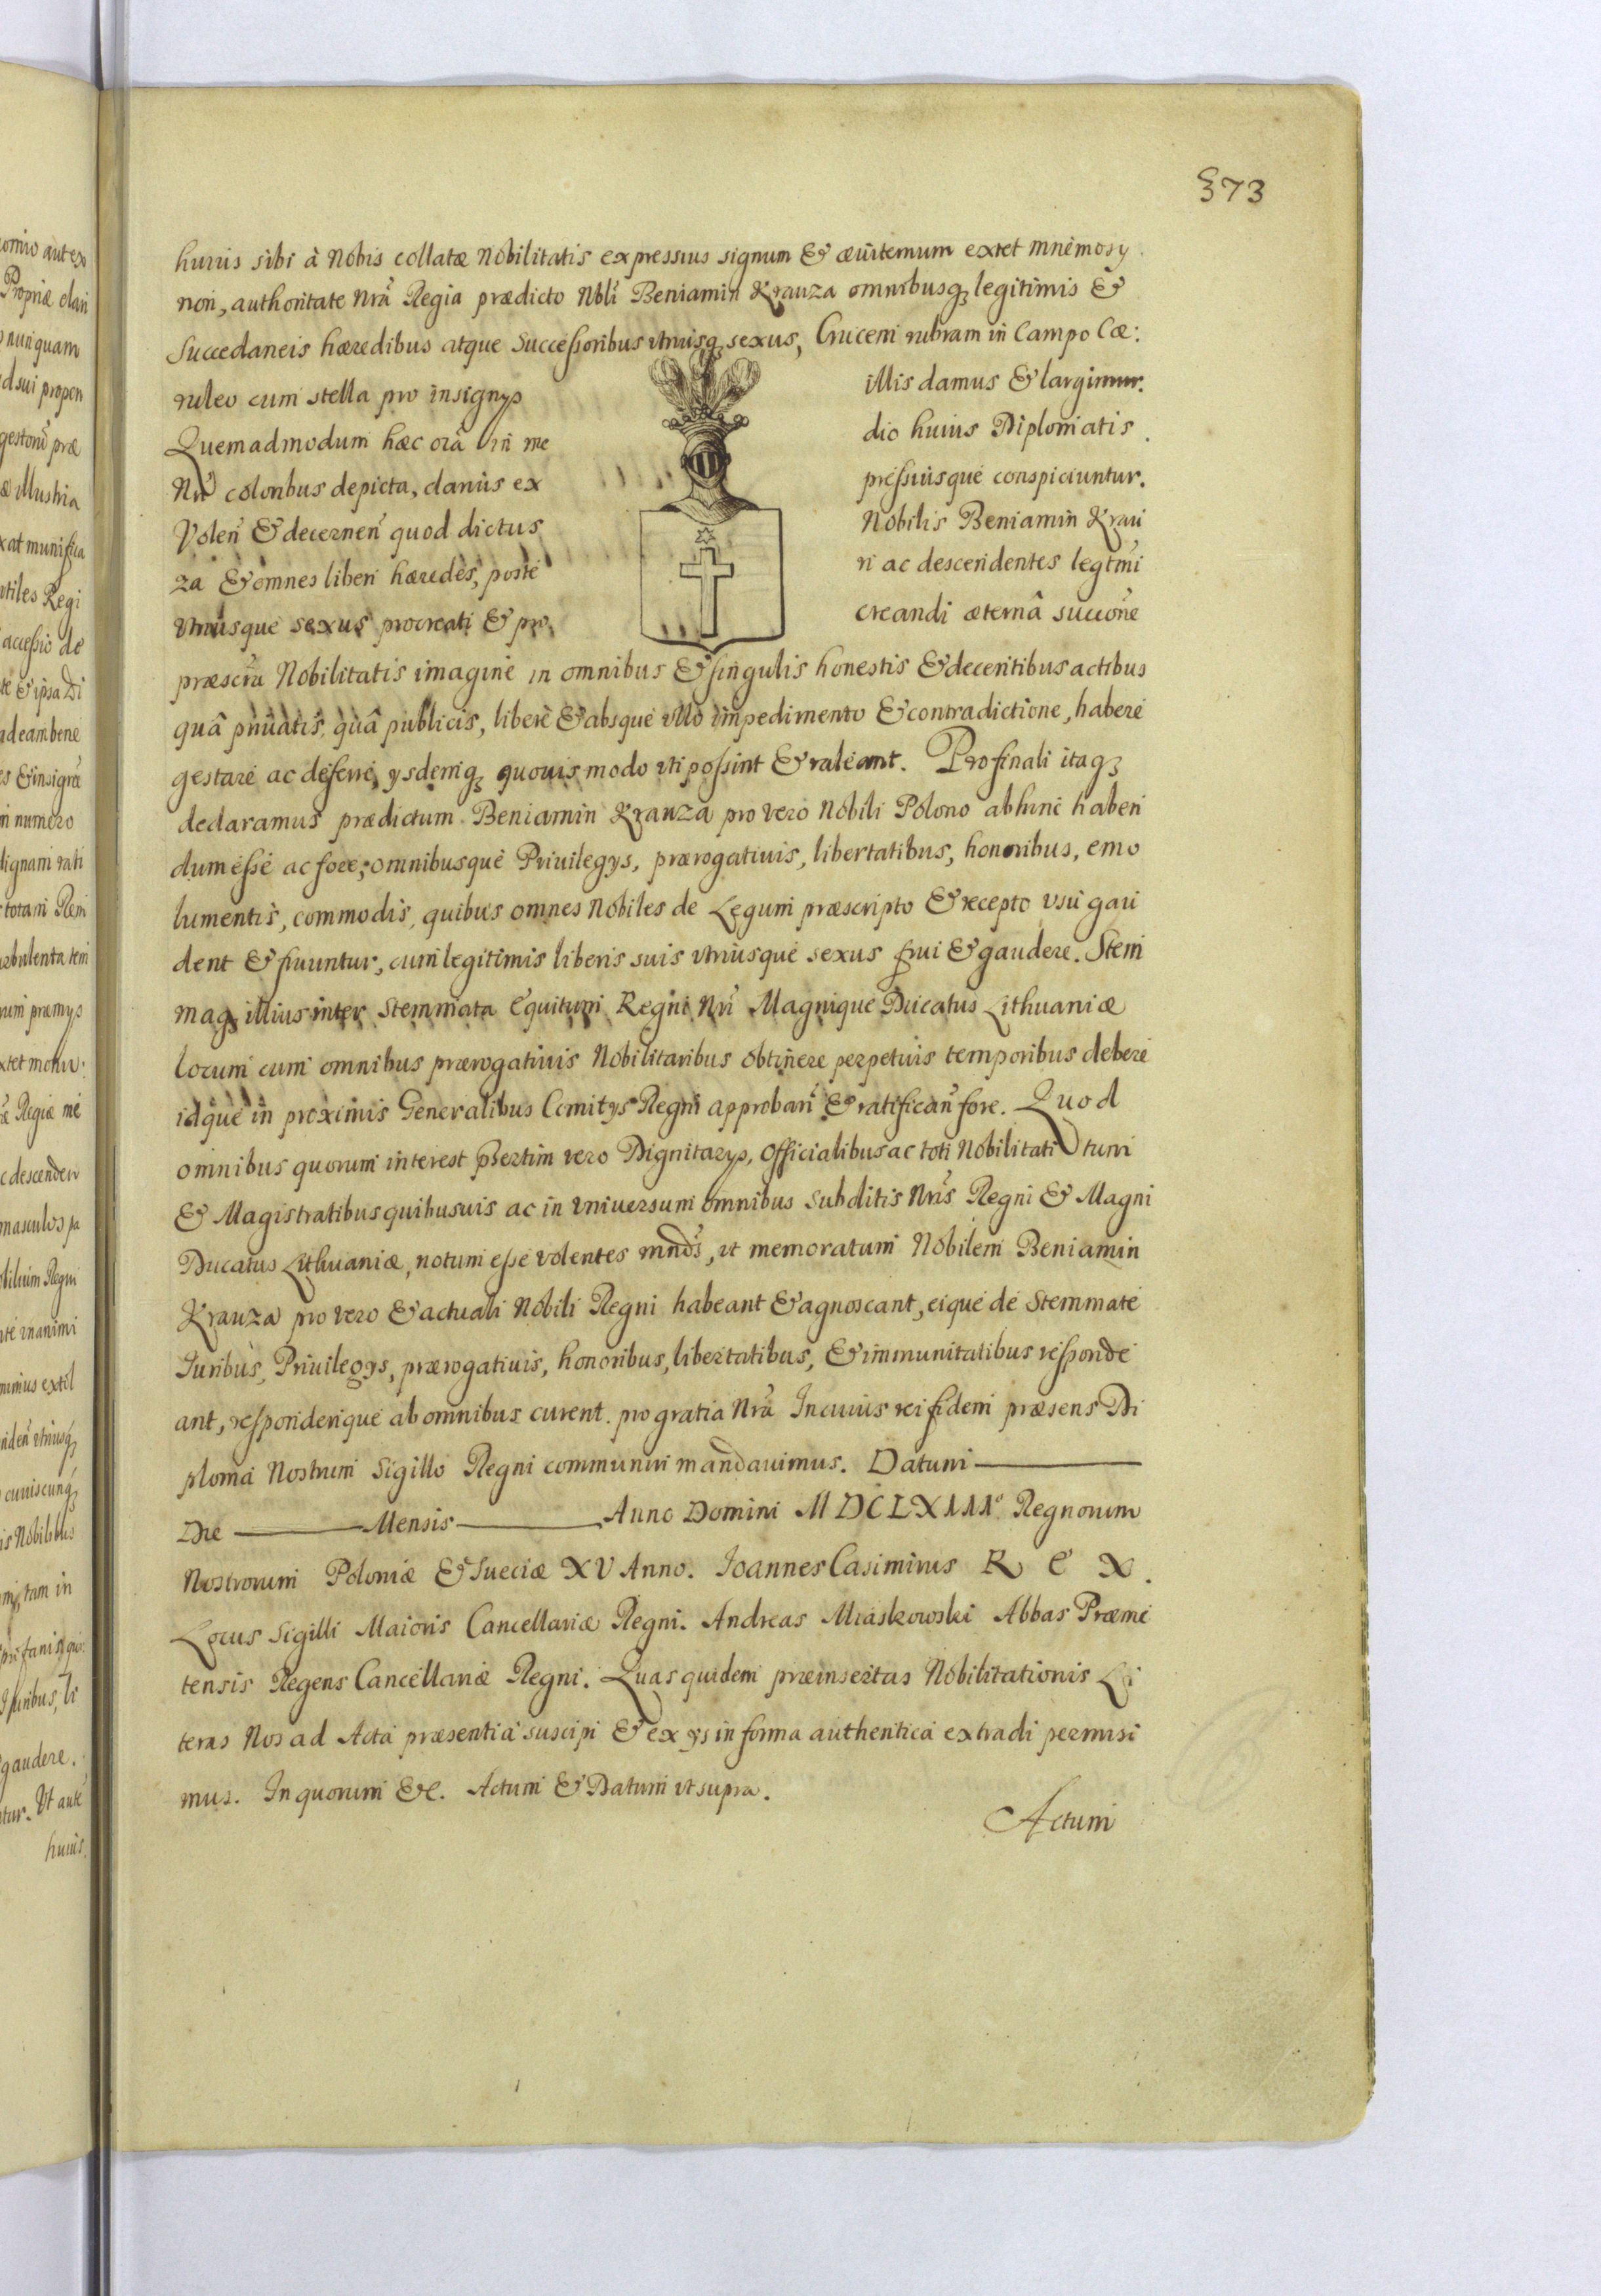 373
huius sibi à Nobis collatæ Nobilitatis expressius signum & æuiternum extet mnèmosy
non, authoritate Nrã Regia prædicto Nbli Beniamin Krauza omnibusq; legitimis &
Succedaneis hæredibus atque Successoribus vtriusq; sexus, Crucem rubram in Campo Cæ:
ruleo cum stella pro insignys illis damus & largimur.
Quemadmodum hæc oĩa in me dio huius Diplomatis
Nri coloribus depicta, clarius ex pressiusque conspiciuntur.
Volen̄ & decernen̄ quod dictus Nobilis Beniamin Krau
za & omnes liberi hæredes, poste ri ac descendentes legtmi
vtriusque sexus procreati & pro creandi æternâ succõne
præscrã Nobilitatis imagine in omnibus & singulis honestis & decentibus actibus
quâ priuatis, quâ publicis, liberè & absque vllo impedimento & contradictione, habere
gestare ac deferre, ysdemq; quouis modo vti possint & valeant. Pro finali itaq;
declaramus prædictum Beniamin Krauza pro vero Nobili Polono abhinc haben
dum esse ac fore; omnibusque Priuilegys, prærogatiuis, libertatibus, honoribus, emo
lumentis, commodis, quibus omnes Nobiles de Legum præscripto & recepto vsu gau
dent & fruuntur, cum legitimis liberis suis vtriusque sexus frui & gaudere. Stem
maq; illius inter Stemmata Equitum Regni Nri Magnique Ducatus Lithuaniæ
locum cum omnibus prærogatiuis Nobilitaribus obtinere perpetuis temporibus debere
idque in proximis Generalibus Comitys Regni approban̄ & ratifican̄ fore. Quod
omnibus quorum interest pſertim vero Dignitarys, Officialibus ac toti Nobilitati tum
& Magistratibus quibusuis ac in vniuersum omnibus Subditis Nrĩs Regni & Magni
Ducatus Lithuaniæ, notum esse volentes mnd̃s, vt memoratum Nobilem Beniamin
Krauza pro vero & actuali Nobili Regni habeant & agnoscant, eique de Stemmate
Juribus, Priuilegys, prærogatiuis, honoribus, libertatibus, & immunitatibus responde
ant, responderique ab omnibus curent. pro gratia Nrã In cuius rei fidem præsens Di
ploma Nostrum Sigillo Regni communiri mandauimus. Datum
Die Mensis Anno Domini MDCLXIII° Regnorum
Nostrorum Poloniæ & Sueciæ XV Anno. Ioannes Casimirus REX.
Locus Sigilli Maioris Cancellariæ Regni. Andreas Miaskowski Abbas Præme
tensis Regens Cancellariæ Regni. Quas quidem præinsertas Nobilitationis Li
teras Nos ad Acta præsentia suscipi & ex ys in forma authentica extradi permisi
mus. In quorum &c. Actum & Datum vt supra.
Actum